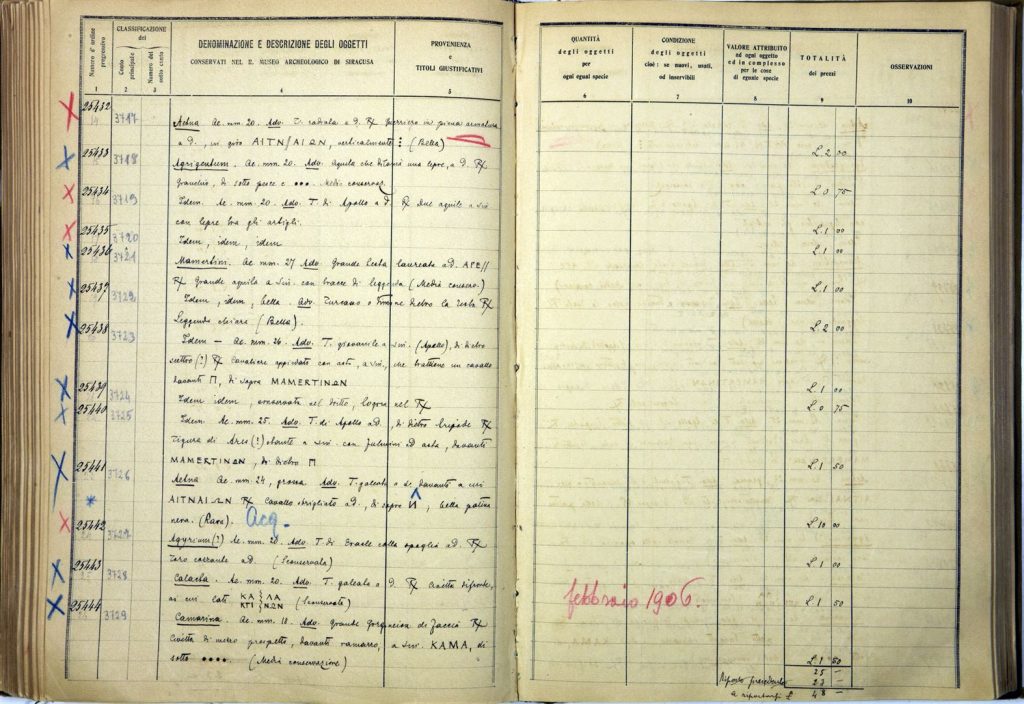 CLASSIFICAZIONE
del
Numero d'ordine
progressivo
Conto
principale
Numero del
sotto conto
DENOMINAZIONE E DESCRIZIONE DEGLI OGGETTI
CONSERVATI NEL R. MUSEO ARCHEOLOGICO DI SIRACUSA
PROVENIENZA
e
TITOLI GIUSTIFICATIVI
1 2 3 4 5
25432 3717 Aetna Ae. mm. 20. Adv. T. radiata a d. R) Guerriero in piena armatura
a d., in giro AITN/AIΩN, verticalmente ⋮ (Bella)
25433 3718 Agrigentum. Ae. mm. 20. Adv. Aquila che una lepre, a D. R)
Granchio, di sotto pesce e ••• Medio conservaz.
25434 3719 Idem. Ae. mm. 20. Adv. T. di Apollo a d. R) Due aquile a sin.
con lepre tra gli artigli.
25435 3720 Idem, idem, idem
25436 3721 Mamertini. Ae. mm. 27 Adv. Grande testa laureata a D. ΑΡΕ//
R) Grande aquila a sin. con tracce di leggenda (Media conserv.)
25437 3722 Idem, idem, bella. Adv. Turcasso o timone dietro la testa R)
Leggenda chiara (Bella).
25438 3723 Idem — Ae. mm. 26. Adv. T. giovanile a sin. (Apollo), di dietro
scettro (?) R) Cavaliere appiedato con asta, a sin., che trattiene un cavallo
davanti Π, di sopra ΜΑΜΕΡΤΙΝΩΝ
25439 3724 Idem idem, conservata nel dritto, logora nel R)
25440 3725 Idem Ae. mm. 25. Adv. T. di Apollo a d., di dietro R)
Figura di Ares (?) a sin. con ad asta, davanti
ΜΑΜΕΡΤΙΝΩΝ, di dietro Π
25441 3726 Aetna Ae. mm. 24, grossa. Adv. T. galeata a d. davanti a cui
ΑΙΤΝΑΙΩΝ R) Cavallo sbrigliato a D., di sopra И, bella patina
nera. (Rara). Acq.
25442 3727 Agyrium (?) Ae. mm. 20. Adv. T. di Eracle colla spoglia a D. R)
Toro corrente a D. (Sconservata)
25443 3728 Calacta. Ae. mm. 20. Adv. T. galeata a D. R) Civetta di fronte,
ai cui lati ΚΑ ΛΑ
ΚΤΙ ΝΩΝ (Sconservata)
25444 3729 Camarina. Ae. mm. 18. Adv. Grande Gorgoneion di faccia R)
Civetta di mezzo prospetto, davanti ramarro, a sin. ΚΑΜΑ, di
sotto •••• (Media conservazione)
QUANTITÀ
degli oggetti
per
ogni egual specie
CONDIZIONE
degli oggetti
cioè: se nuovi, usati,
od inservibili
VALORE ATTRIBUITO
ad ogni oggetto
ed in complesso
per le cose
di eguale specie
TOTALITÀ
dei prezzi
OSSERVAZIONI
6 7 8 9 10
L. 2 00
L. 0 75
L. 1 00
L. 1 00
L. 1 00
L. 2 00
L. 1 00
L. 0 75
L. 1 50
L. 10 00
L. 1 00
febbraio 1906. L. 1 50
L. 1 50
25 —
Riporto precedente 23 —
a riportarsi £ 48 —